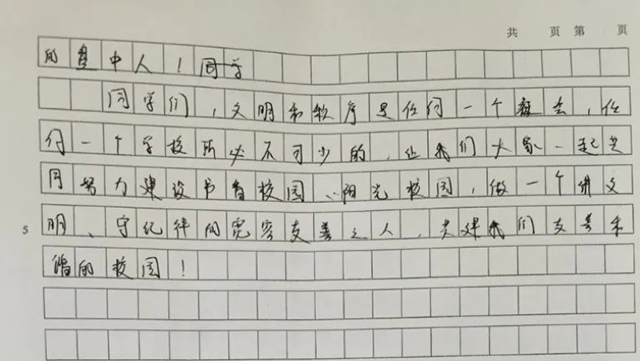 共 页 第 页
的集中人！同学
同学们，文明和秩序是任何一个社会，任
何一个学校所必不可少的，让我们大家一起共
同努力建设书香校园、阳光校园，做一个讲文
5 明、守纪律的宽容友善之人，共建我们友善和
谐的校园！